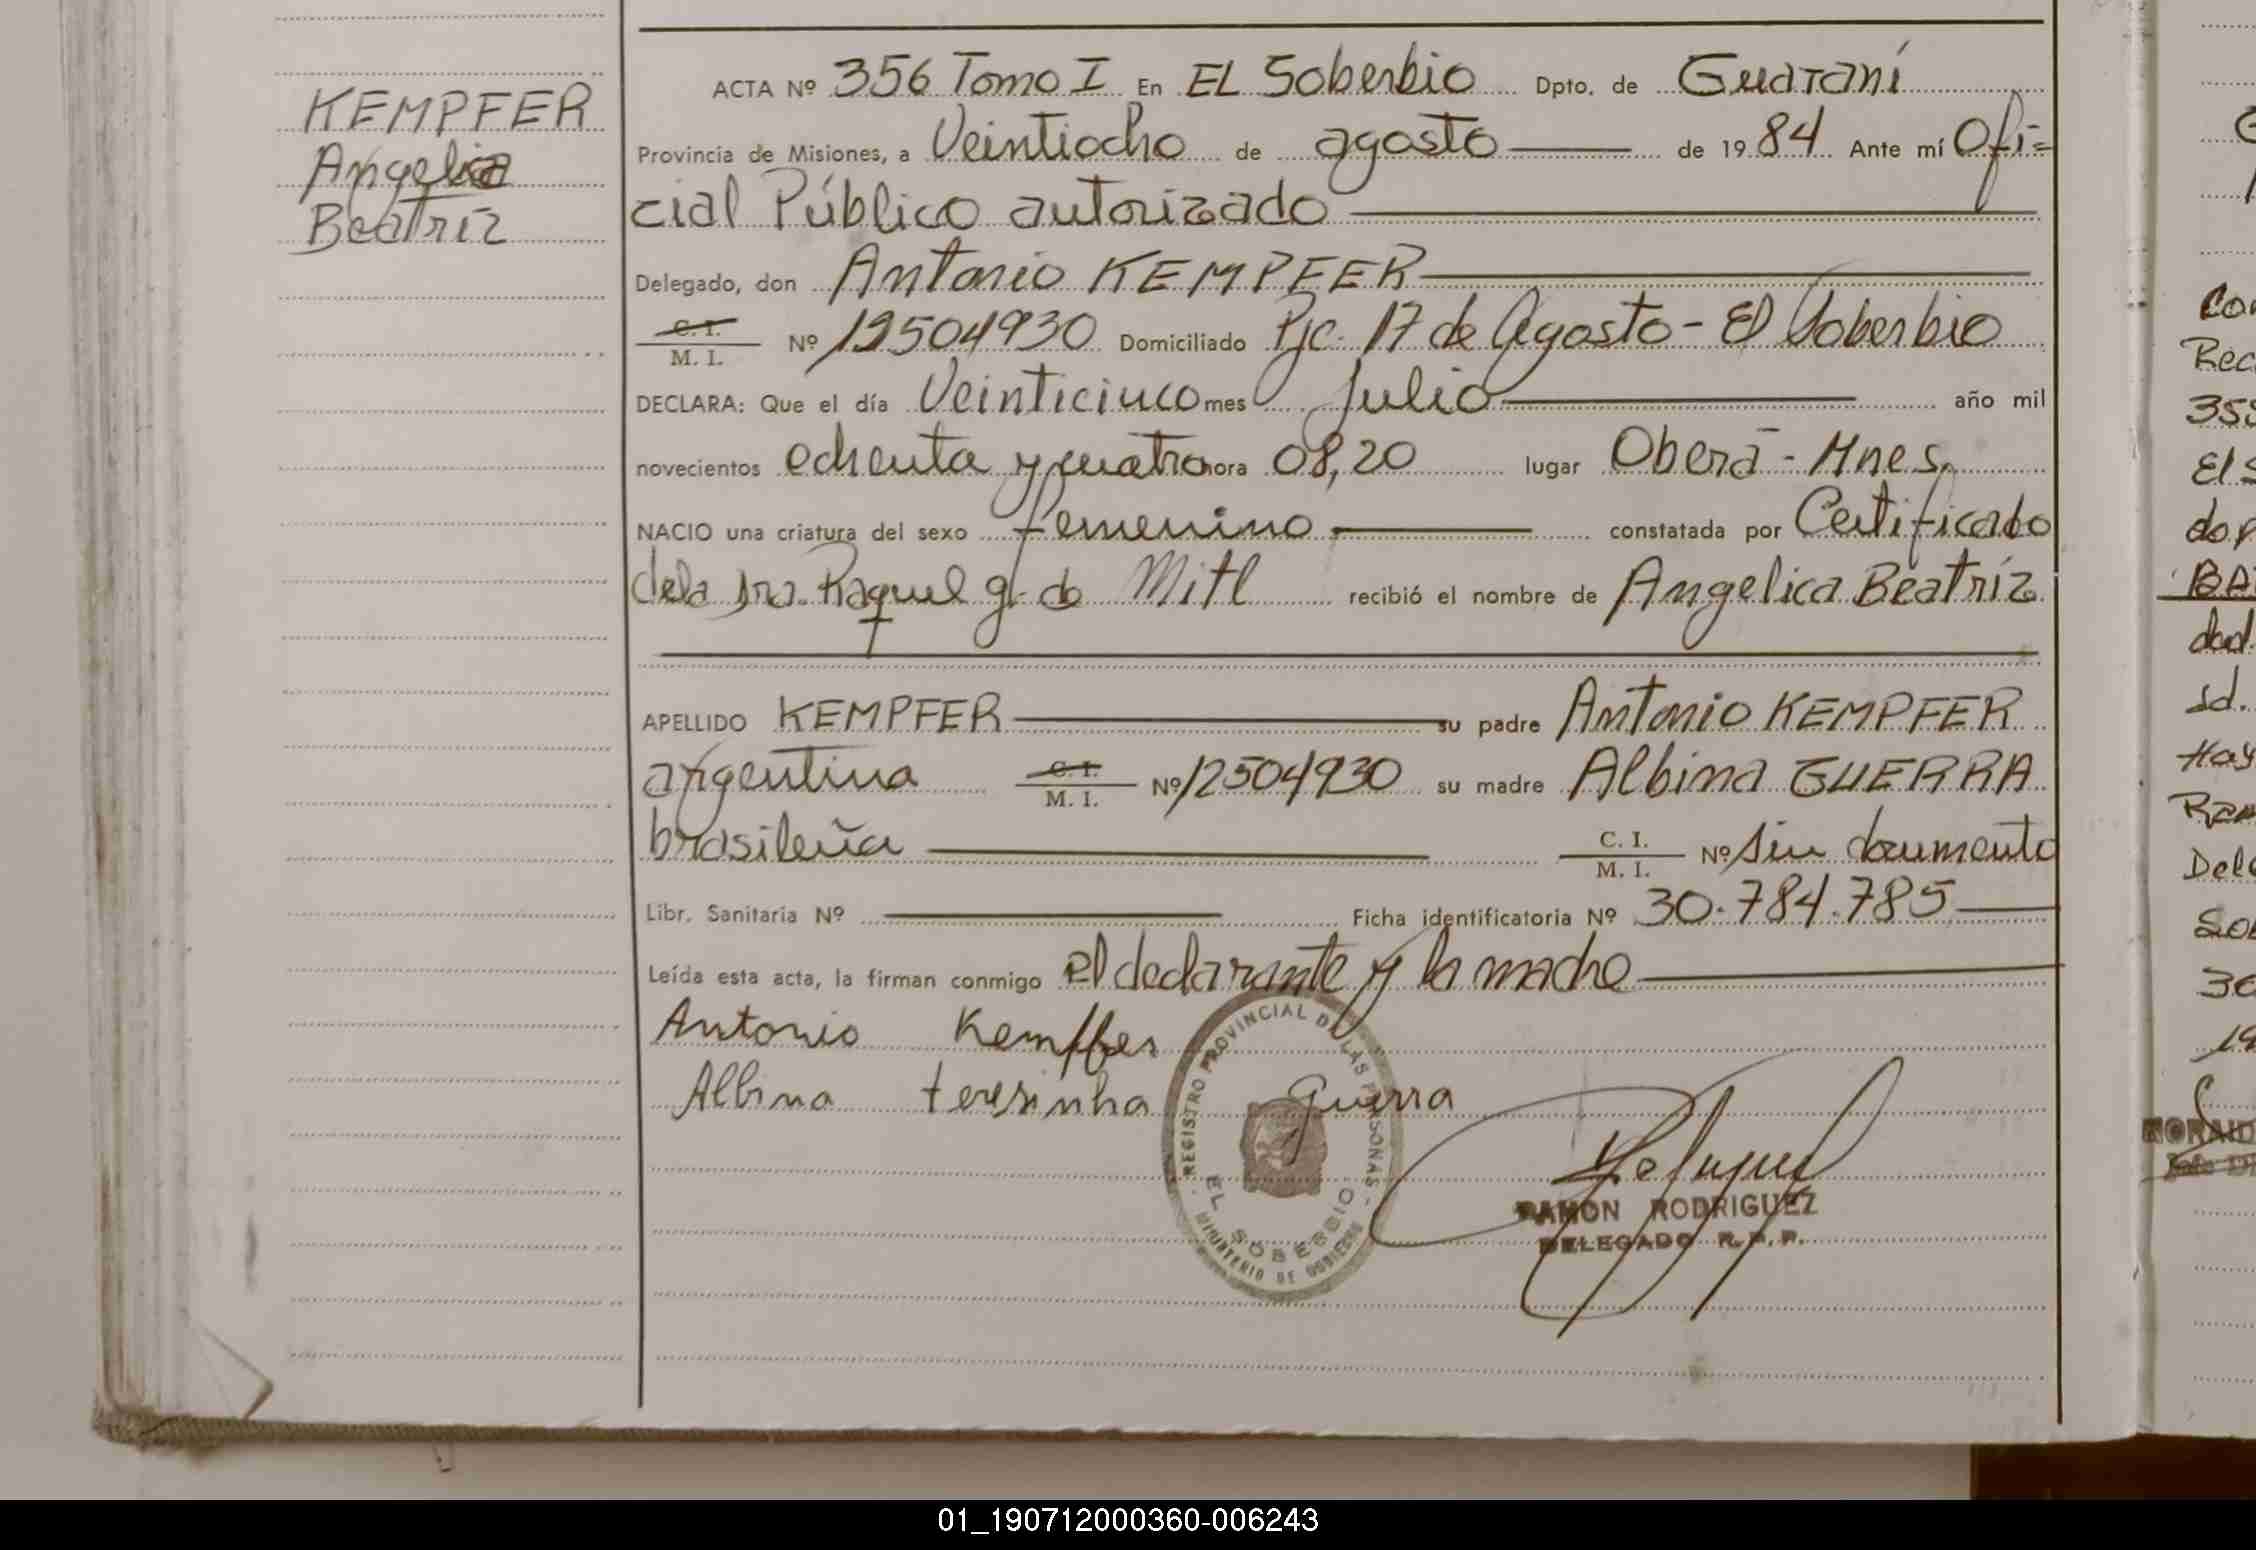 KEMPFER
Angelica
Beatríz
ACTA Nº 356 Tomo I En EL Soberbio Dpto. de Guaraní
Provincia de Misiones, a Veintiocho de agosto de 1984 Ante mí Ofi=
cial Público autorizado
Delegado, don Antonio KEMPFER
C. I.
M. I. Nº 12504930 Domiciliado Pje. 17 de Agosto - El Soberbio
DECLARA: Que el día Veinticinco mes Julio año mil
novecientos ochenta y cuatro hora 08,20 lugar Oberá - Mnes.
NACIO una criatura del sexo femenino constatada por Certificado
de la Dra. Raquel G. de Mitl recibió el nombre de Angelica Beatríz
APELLIDO KEMPFER su padre Antonio KEMPFER
argentina C. I.
M. I. Nº 12504930 su madre Albina GUERRA
brasileña C. I.
M. I. Nº Sin documento
Libr. Sanitaria Nº Ficha identificatoria Nº 30.784.785
Leída esta acta, la firman conmigo el declarante y la madre
Antonio Kempfer
Albina teresinha guerra
REGISTRO PROVINCIAL DE LAS PERSONAS
EL SOBERBIO
MINISTERIO DE GOBIERNO
RAMON RODRIGUEZ
DELEGADO R.P.P.
355
El S
dor
BA
dad.
sd.
Hay
Ram
Dele
Sob
30
19
01_190712000360-006243